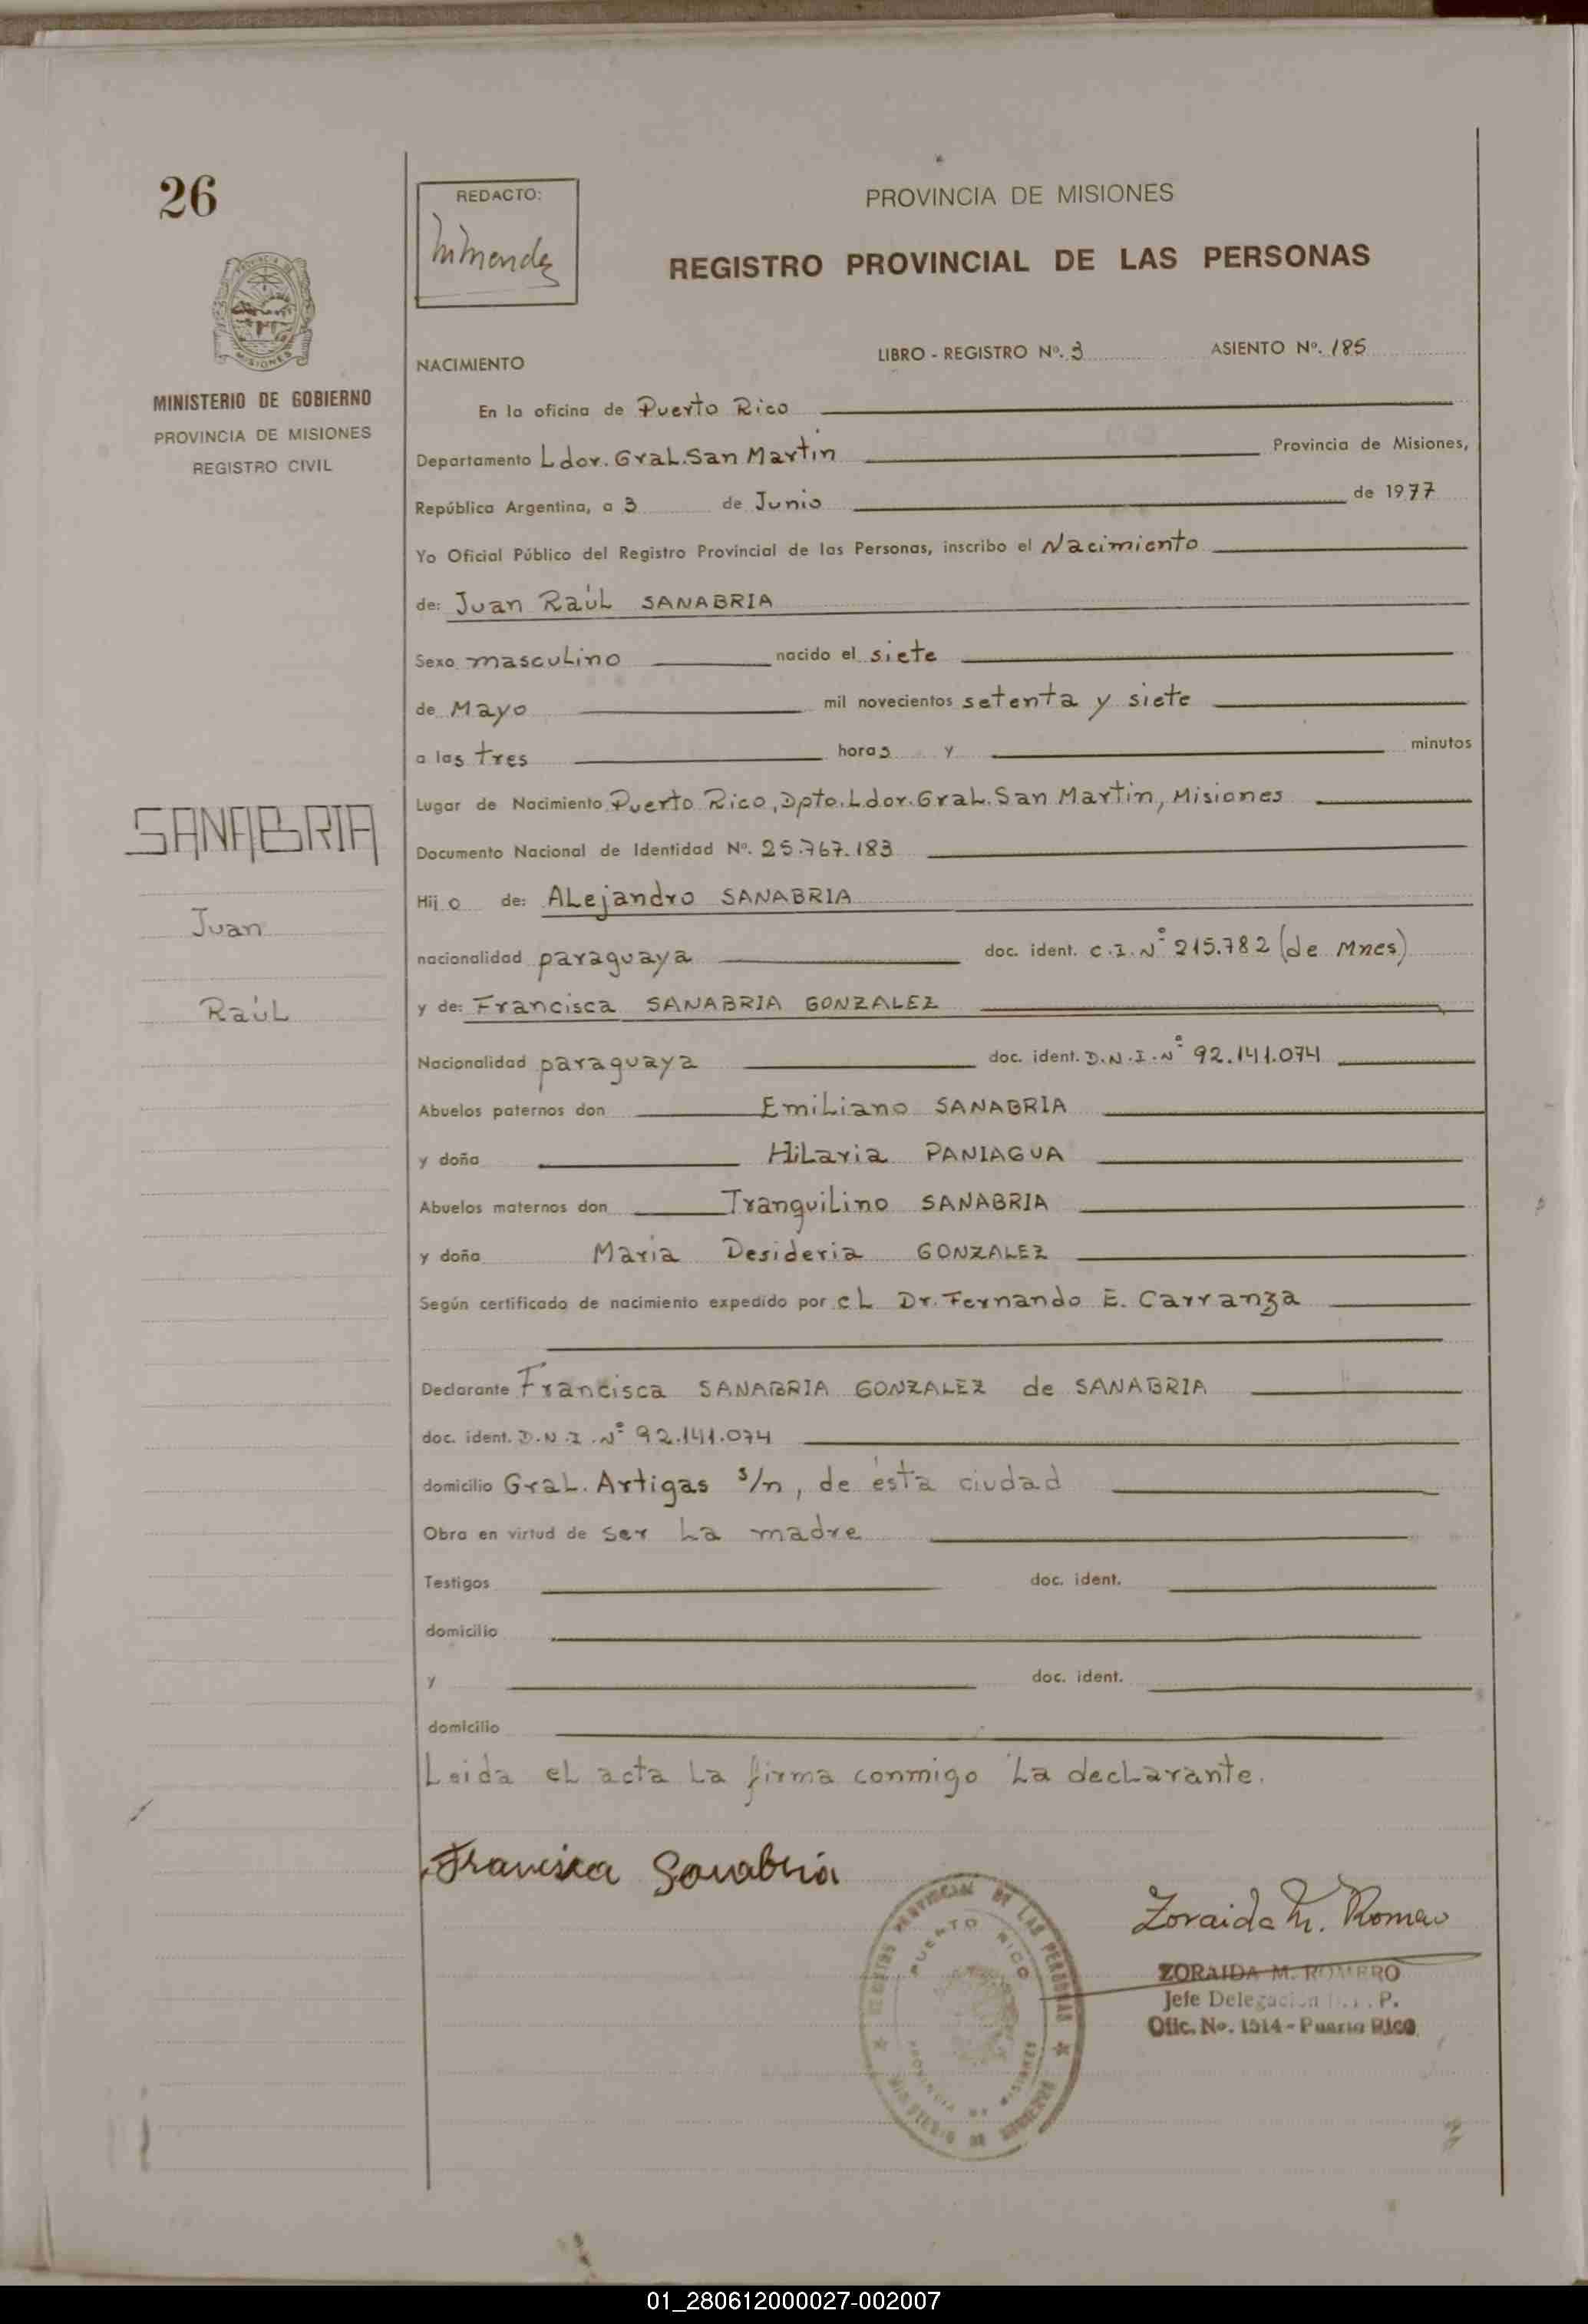 26
REDACTO:
PROVINCIA DE MISIONES
REGISTRO PROVINCIAL DE LAS PERSONAS
PROVINCIA DE
MISIONES
MINISTERIO DE GOBIERNO
PROVINCIA DE MISIONES
REGISTRO CIVIL
NACIMIENTO LIBRO - REGISTRO Nº. 3 ASIENTO Nº. 185
En la oficina de Puerto Rico
Departamento Ldor. Gral. San Martin Provincia de Misiones,
República Argentina, a 3 de Junio de 1977
Yo Oficial Público del Registro Provincial de las Personas, inscribo el Nacimiento
de: Juan Raúl SANABRIA
Sexo masculino nacido el siete
de Mayo mil novecientos setenta y siete
a las tres horas y minutos
Lugar de Nacimiento Puerto Rico, Dpto. Ldor. Gral. San Martin, Misiones
Documento Nacional de Identidad Nº. 25.767.183
Hijo de: Alejandro SANABRIA
nacionalidad paraguaya doc. ident. C.I. Nº 215.782 (de Mnes)
y de: Francisca SANABRIA GONZALEZ
Nacionalidad paraguaya doc. ident. D.N.I. Nº 92.141.074
Abuelos paternos don Emiliano SANABRIA
y doña Hilaria PANIAGUA
Abuelos maternos don Tranquilino SANABRIA
y doña Maria Desideria GONZALEZ
Según certificado de nacimiento expedido por el Dr. Fernando E. Carranza
Declarante Francisca SANABRIA GONZALEZ de SANABRIA
doc. ident. D.N.I. Nº 92.141.074
domicilio Gral. Artigas s/n, de ésta ciudad
Obra en virtud de ser la madre
Testigos doc. ident.
domicilio
y doc. ident.
domicilio
Leida el acta la firma conmigo la declarante.
SANABRIA
Juan
Raúl
Francisca Sanabria
Zoraida M. Romero
REGISTRO PROVINCIAL DE LAS PERSONAS
PUERTO RICO
PROVINCIA DE MISIONES
MINISTERIO DE GOBIERNO
ZORAIDA M. ROMERO
Jefe Delegación P.
Ofic. No. 1514 - Puerto Rico
01_280612000027-002007